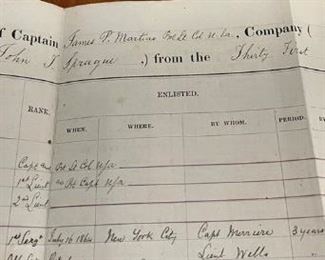 of Captain James P. Martin Bvt Lt Col U.S.A., Company (
John T. Sprague,) from the Thirty First
RANK.
ENLISTED.
WHEN. WHERE. BY WHOM. PERIOD.
Capt and Bvt Lt Col USA
1st Lieut and Bvt Capt USA
2nd Lieut
1st Sergt July 16 1864 New York City Capt 3 years
Lieut Wells